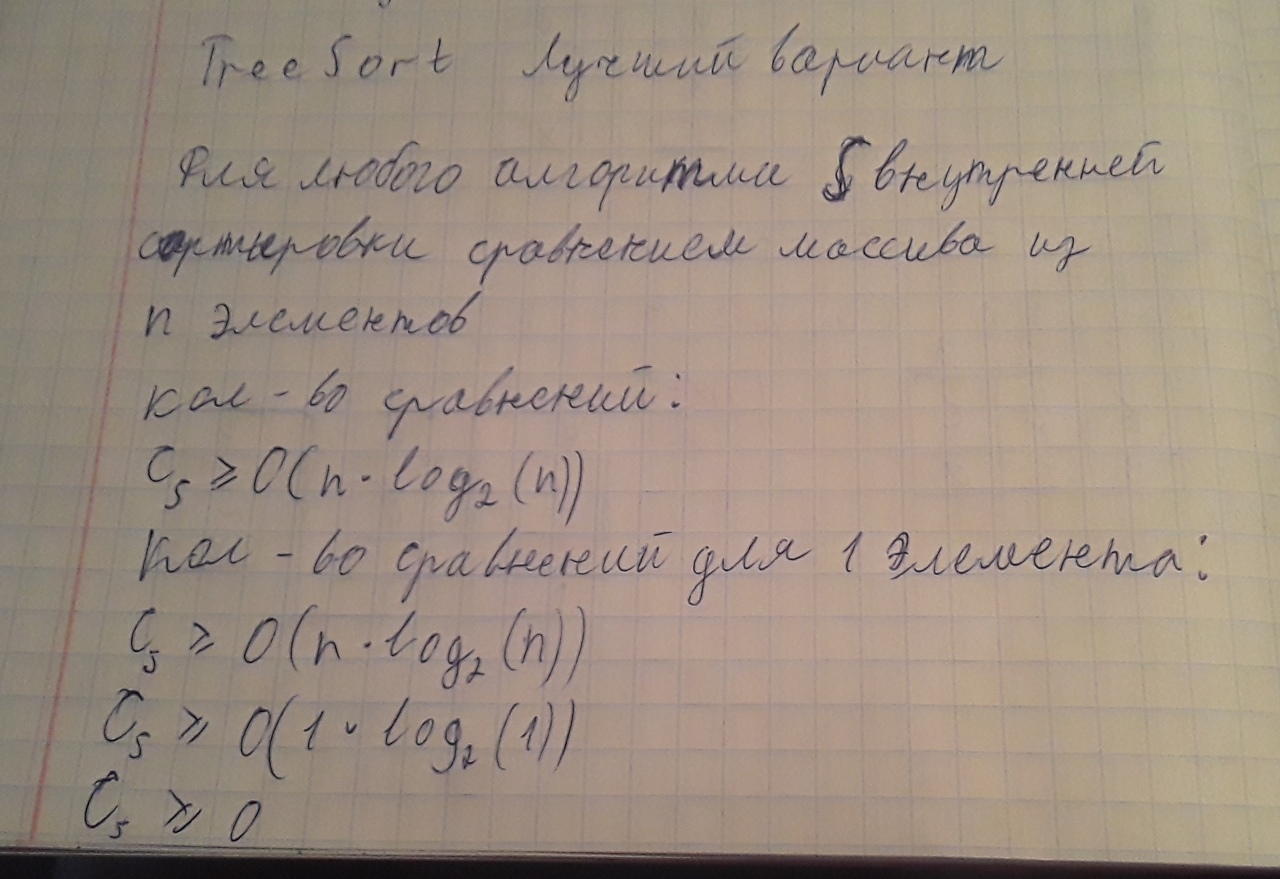 TreeSort Лучший вариант
Для любого алгоритма S внутренней
сортировки сравнением массива из
n элементов
кол-во сравнений:
C₅ ⩾ O(n · log₂(n))
Кол-во сравнений для 1 элемента:
C₅ ⩾ O(n · log₂(n))
C₅ ⩾ O(1 · log₂(1))
C₅ ⩾ 0